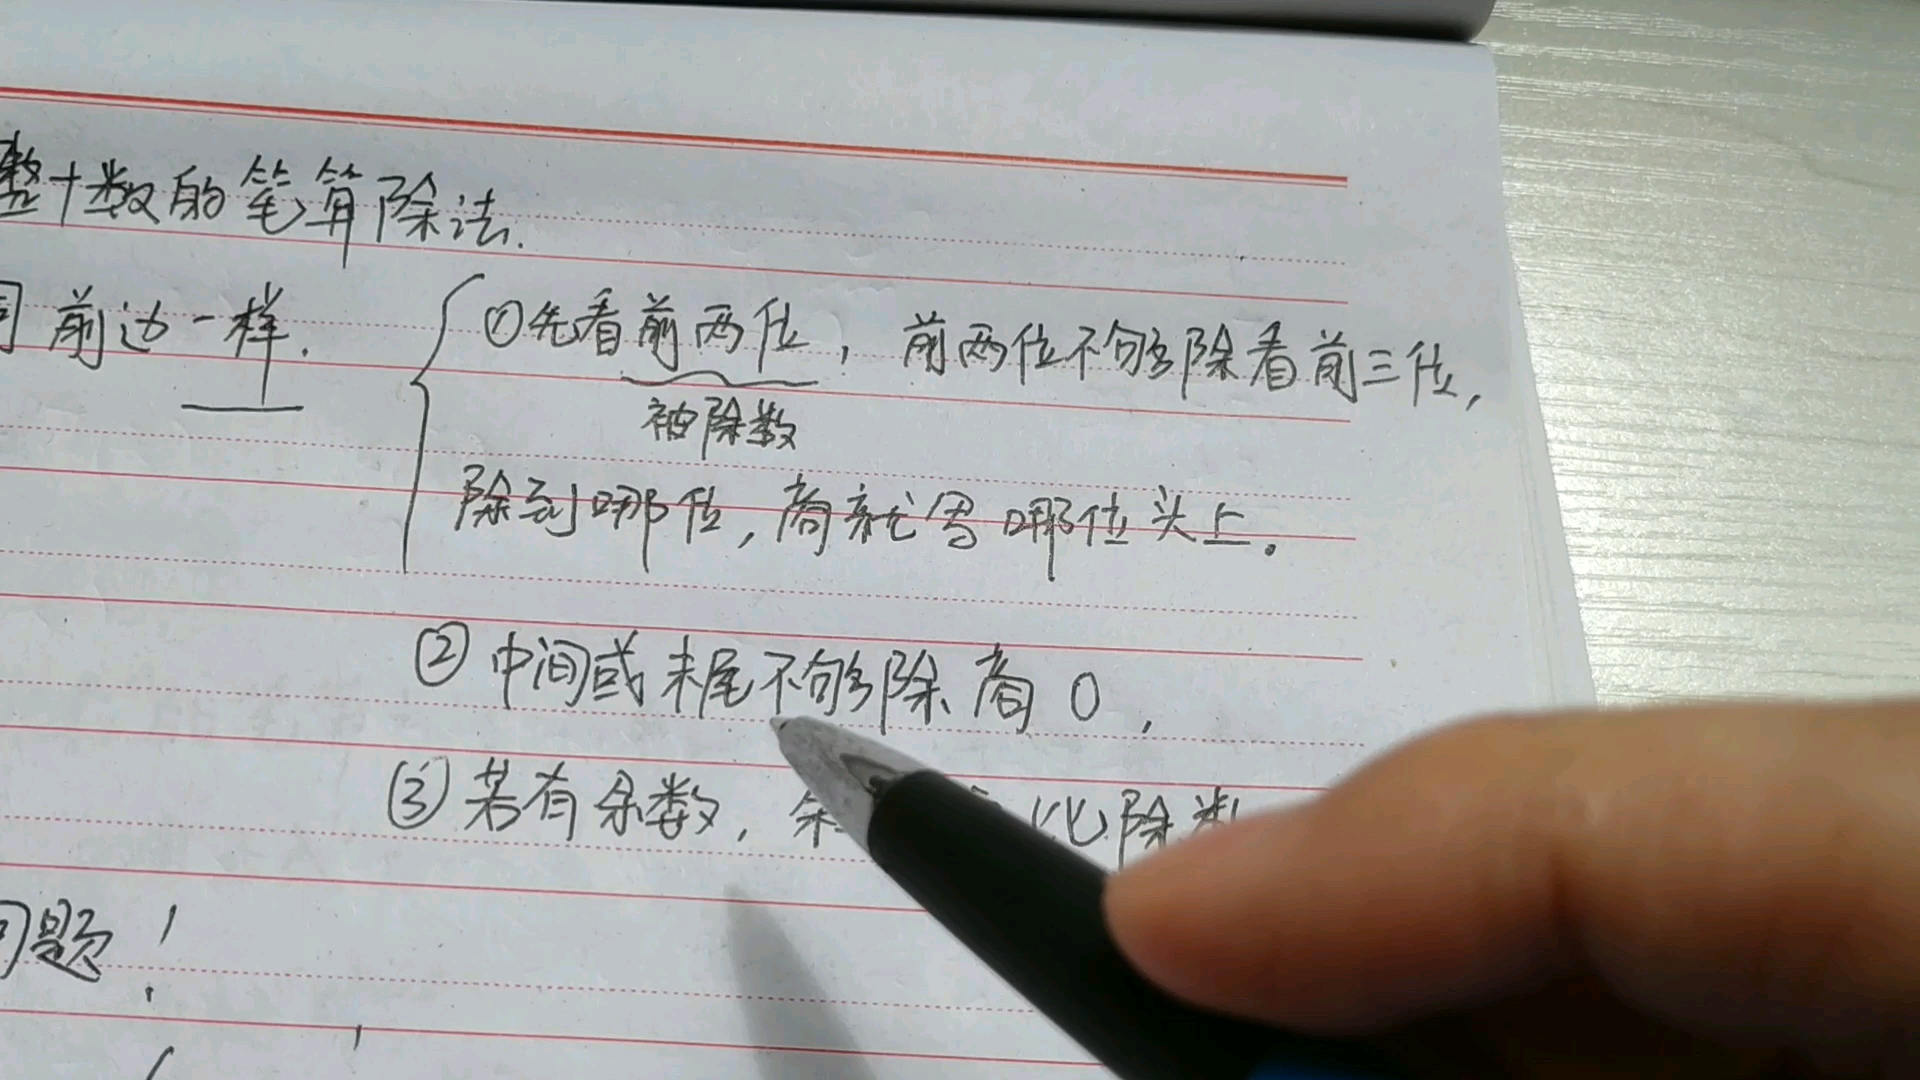 整十数的笔算除法.
同前边一样.
①先看前两位，前两位不够除看前三位，
被除数
除到哪位，商就写哪位头上。
②中间或末尾不够除商0，
③若有余数，余 比除数
问题！